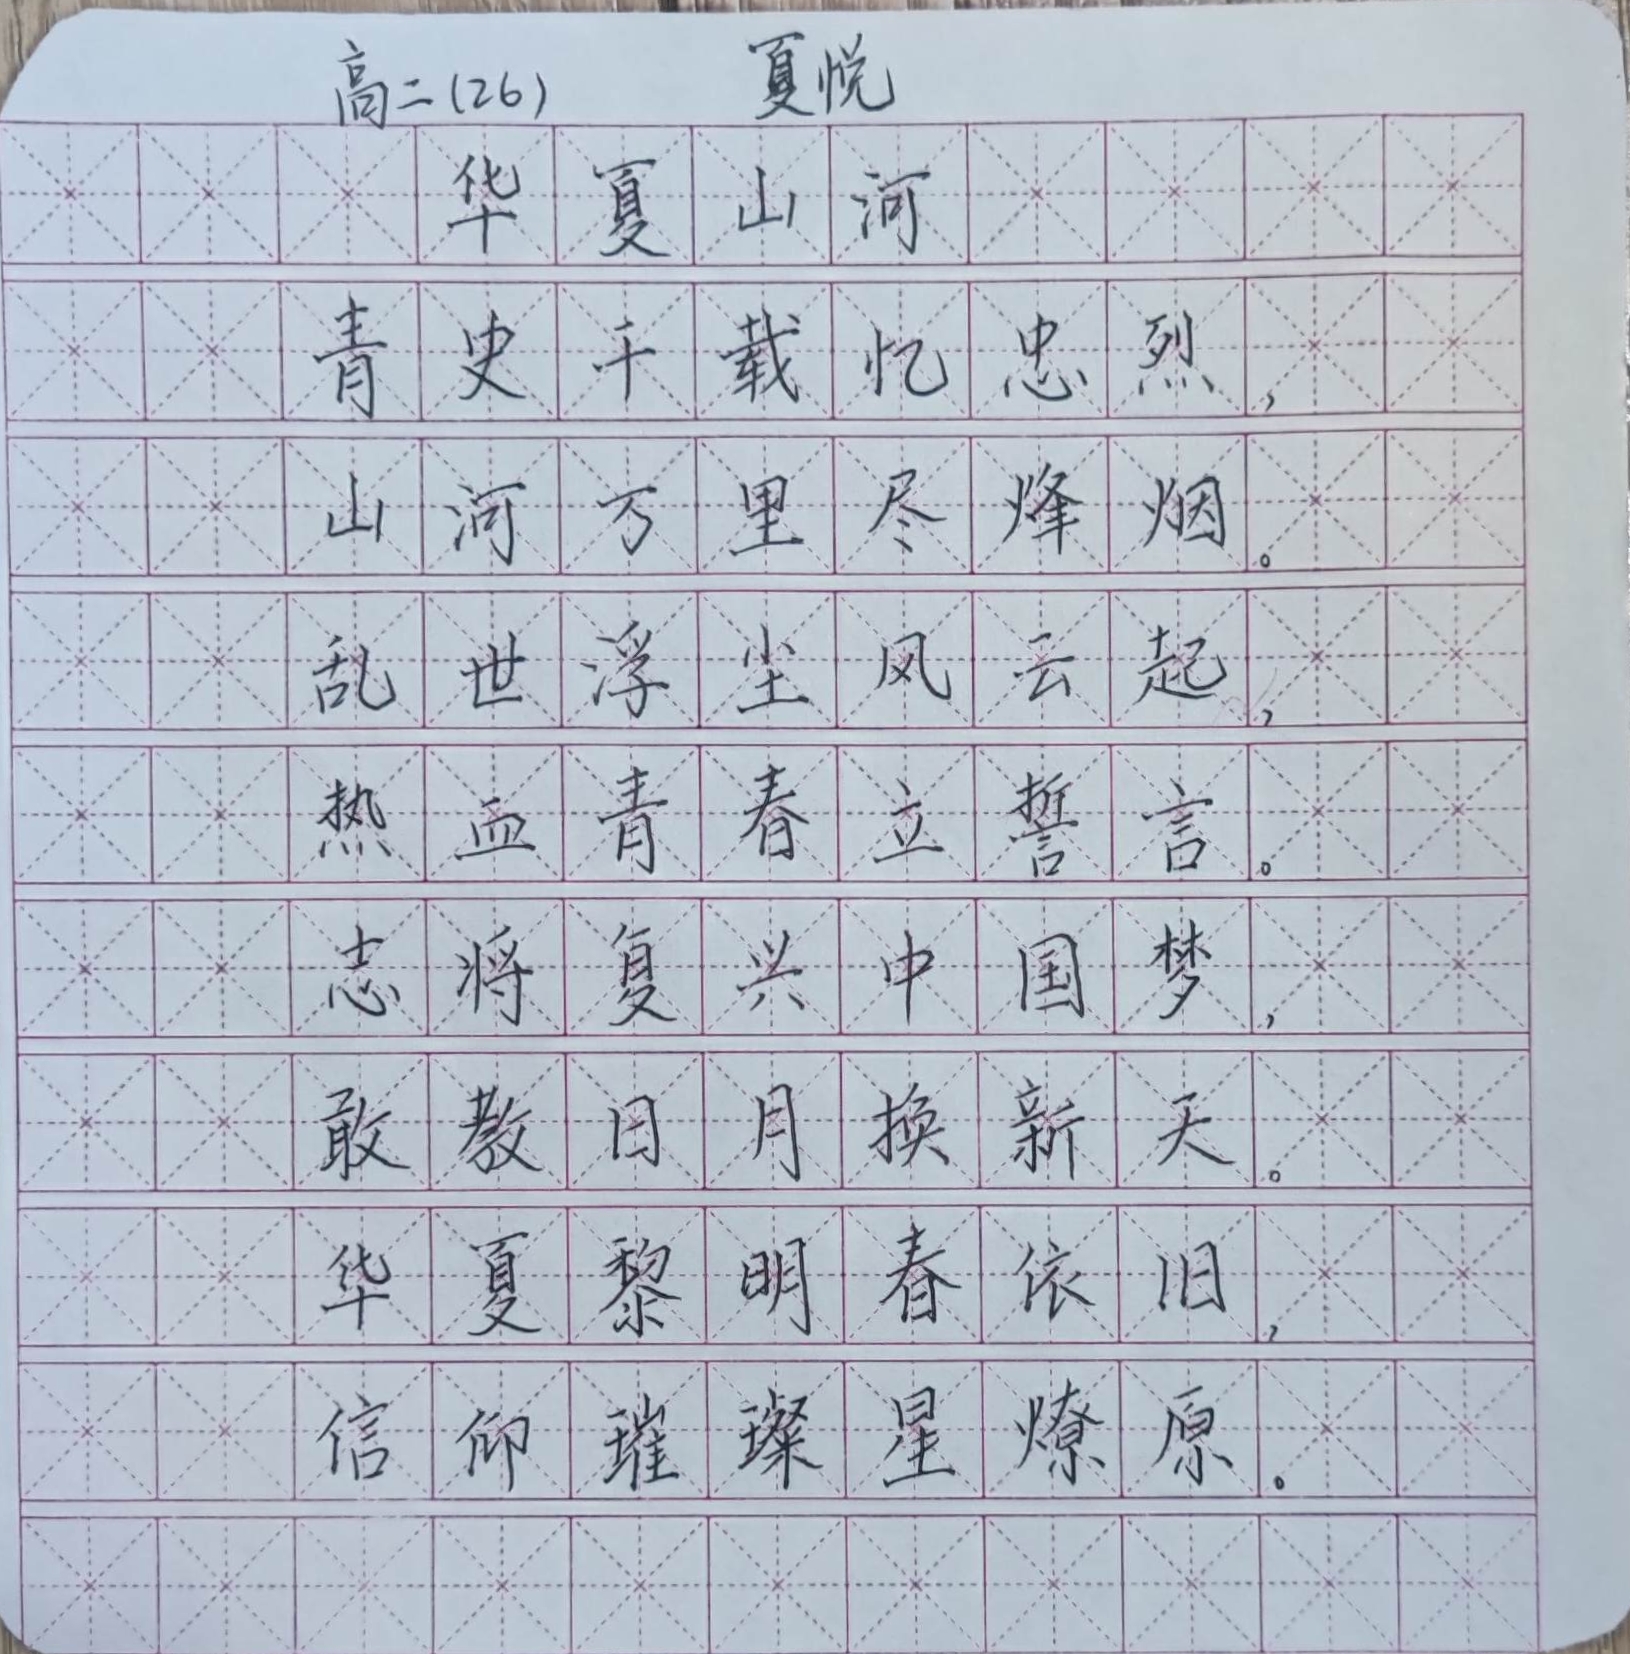 高二(26) 夏悦
华夏山河
青史千载忆忠烈,
山河万里尽烽烟。
乱世浮尘风云起,
热血青春立誓言。
志将复兴中国梦,
敢教日月换新天。
华夏黎明春依旧,
信仰璀璨星燎原。